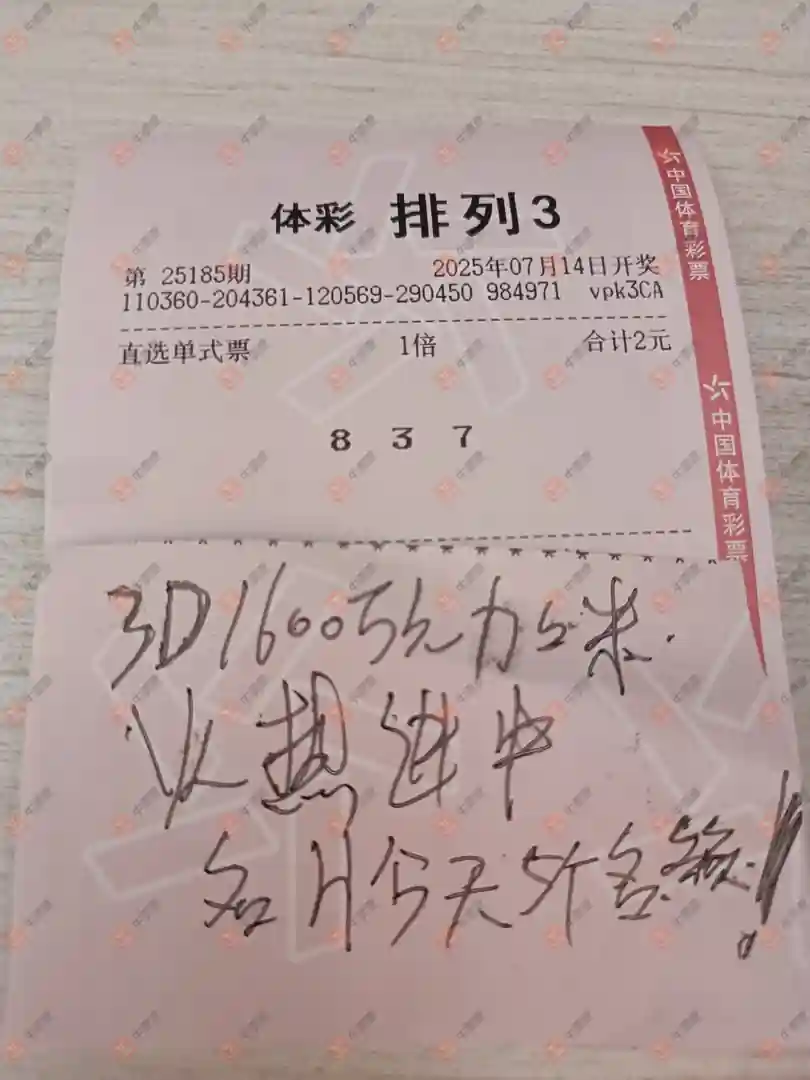 体彩 排列3
第 25185期 2025年07月14日开奖
110360-204361-120569-290450 984971 vpk3CA
直选单式票 1倍 合计2元
8 3 7
中国体育彩票
中国体育彩票
3D1600万元
火热 中
今天5个名额!